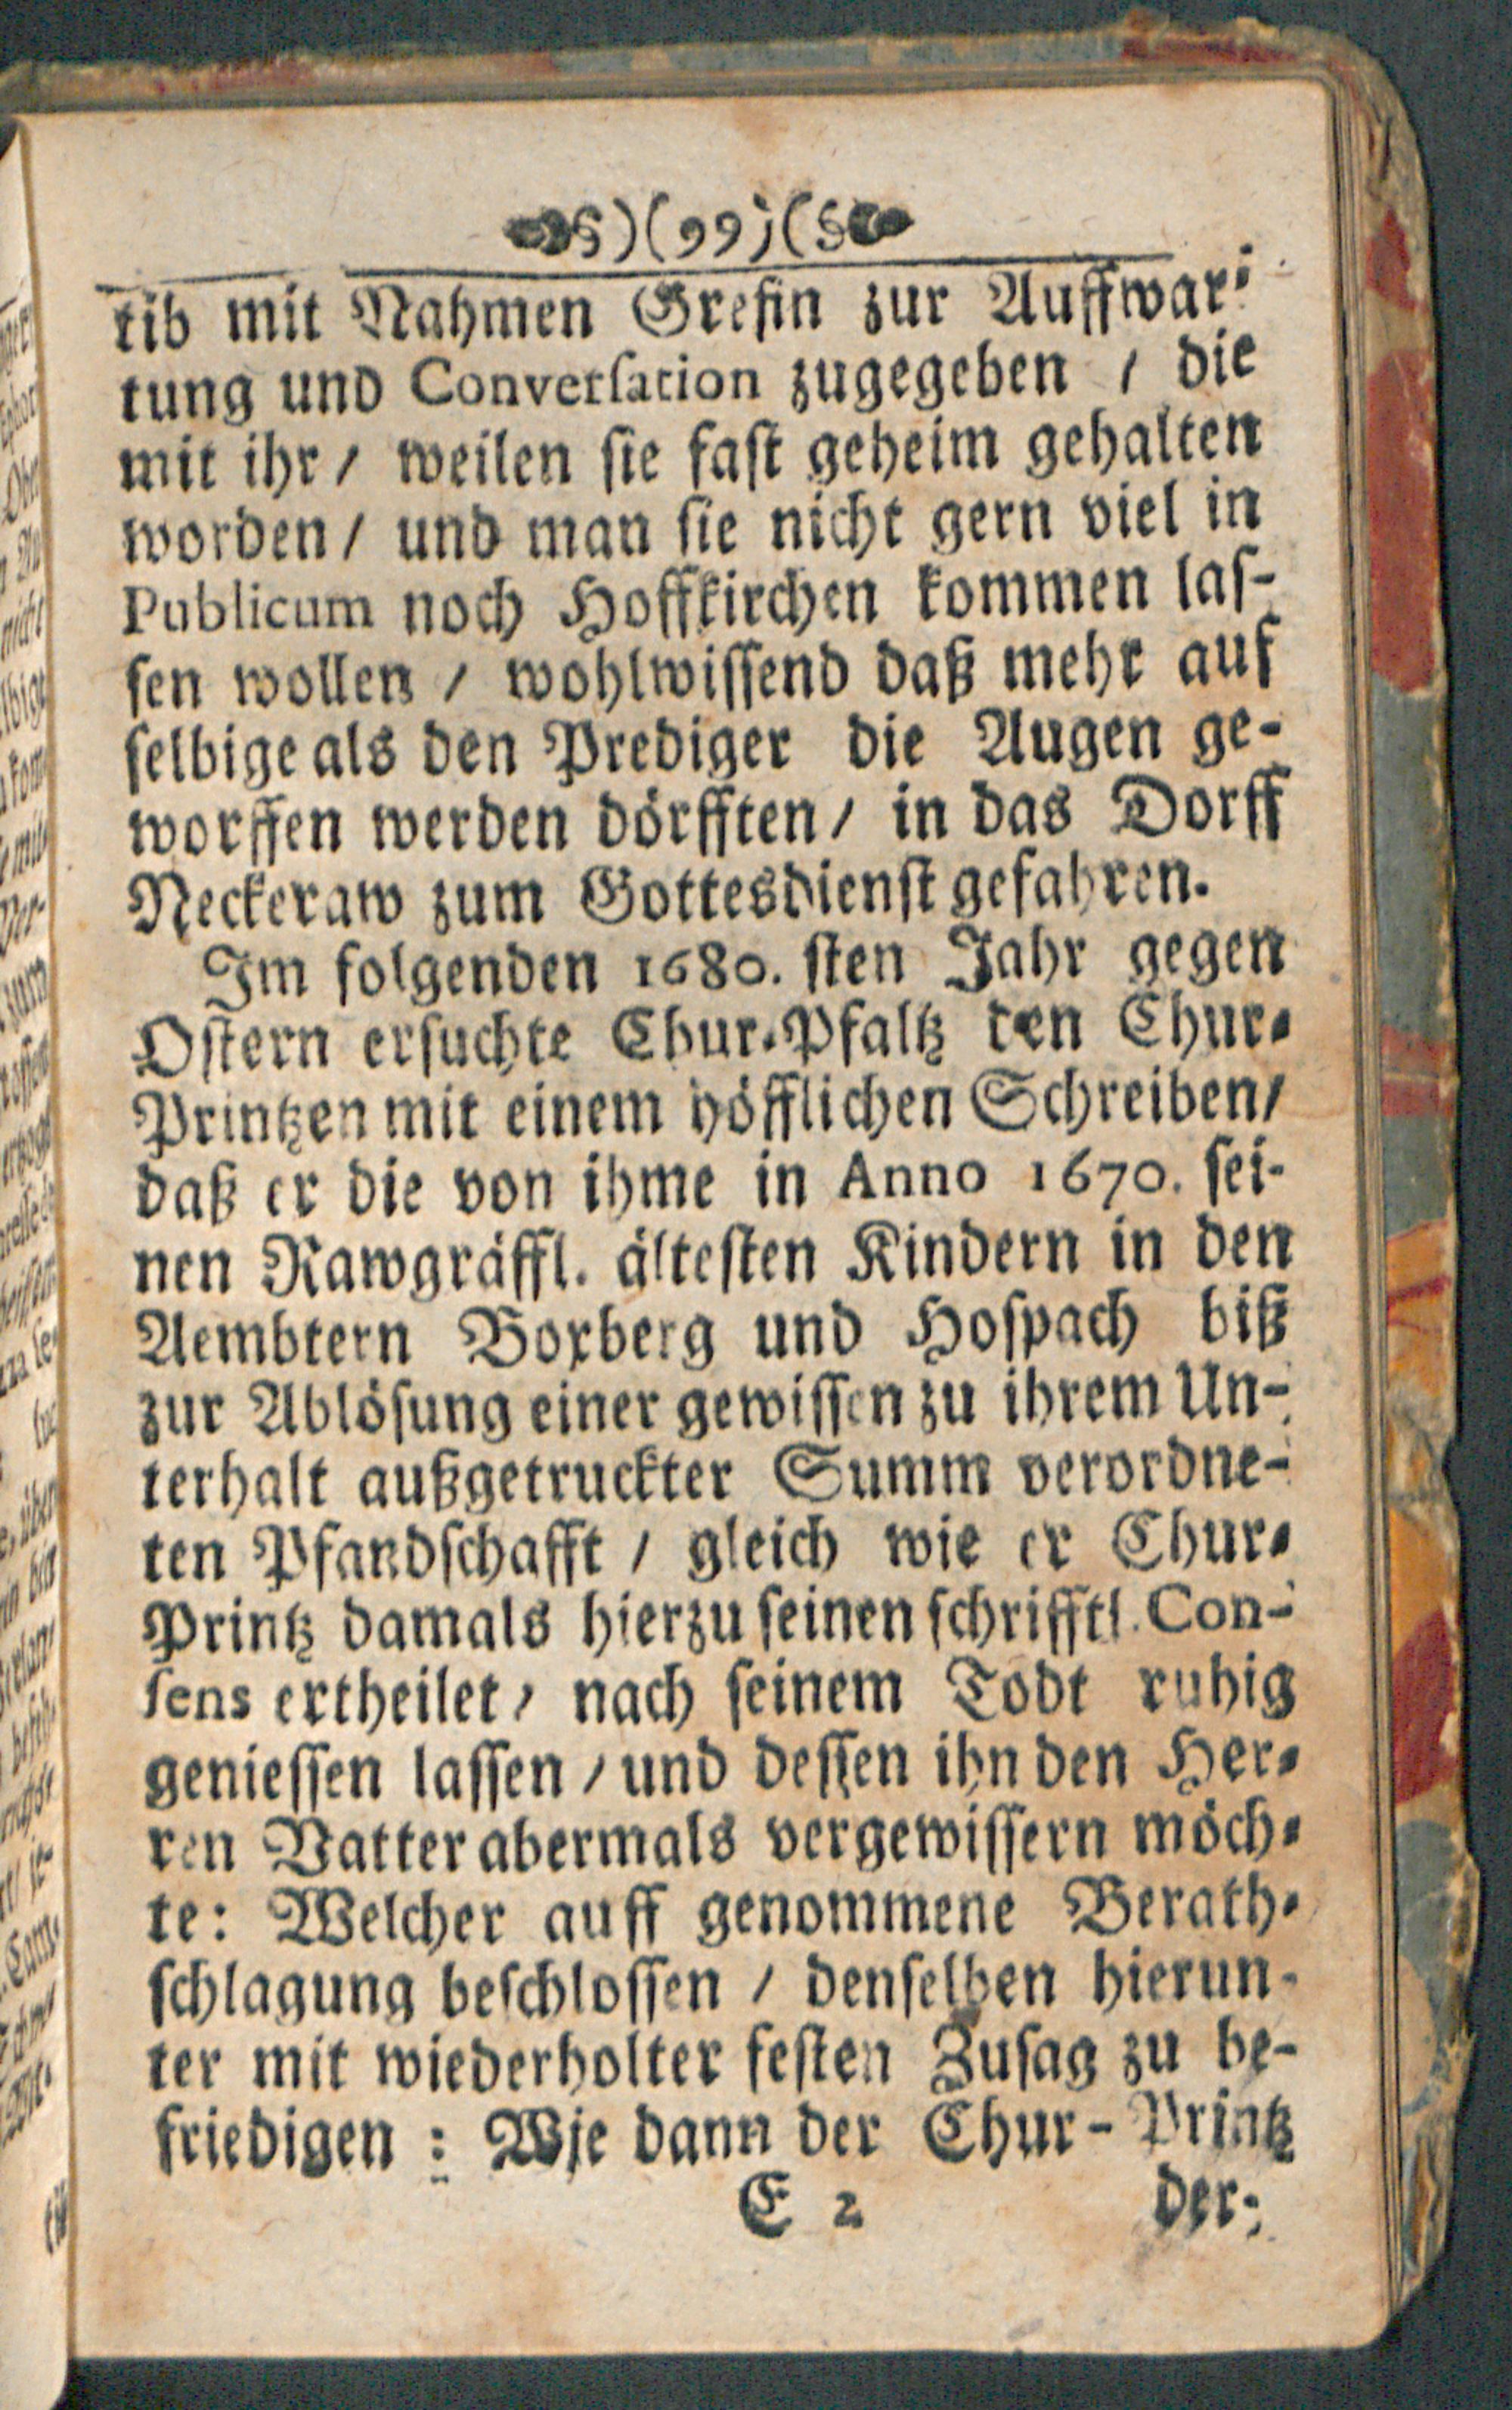 §)(99)(§
tib mit Nahmen Gresin zur Auffwar-
tung und Conversation zugegeben / die
mit ihr / weilen sie fast geheim gehalten
worden / und man sie nicht gern viel in
Publicum noch Hoffkirchen kommen las-
sen wollen / wohlwissend daß mehr auf
selbige als den Prediger die Augen ge-
worffen werden dörfften / in das Dorff
Neckeraw zum Gottesdienst gefahren.
Im folgenden 1680. sten Jahr gegen
Ostern ersuchte Chur-Pfaltz den Chur-
Printzen mit einem höfflichen Schreiben /
daß er die von ihme in Anno 1670. sei-
nen Rawgräffl. ältesten Kindern in den
Aembtern Boxberg und Hospach biß
zur Ablösung einer gewissen zu ihrem Un-
terhalt außgetruckter Summ verordne-
ten Pfandschafft / gleich wie er Chur-
Printz damals hierzu seinen schrifftl. Con-
sens ertheilet / nach seinem Todt ruhig
geniessen lassen / und dessen ihn den Her-
ren Vatter abermals vergewissern möch-
te: Welcher auff genommene Berath-
schlagung beschlossen / denselben hierun-
ter mit wiederholter festen Zusag zu be-
friedigen : Wie dann der Chur-Printz
E 2 der-